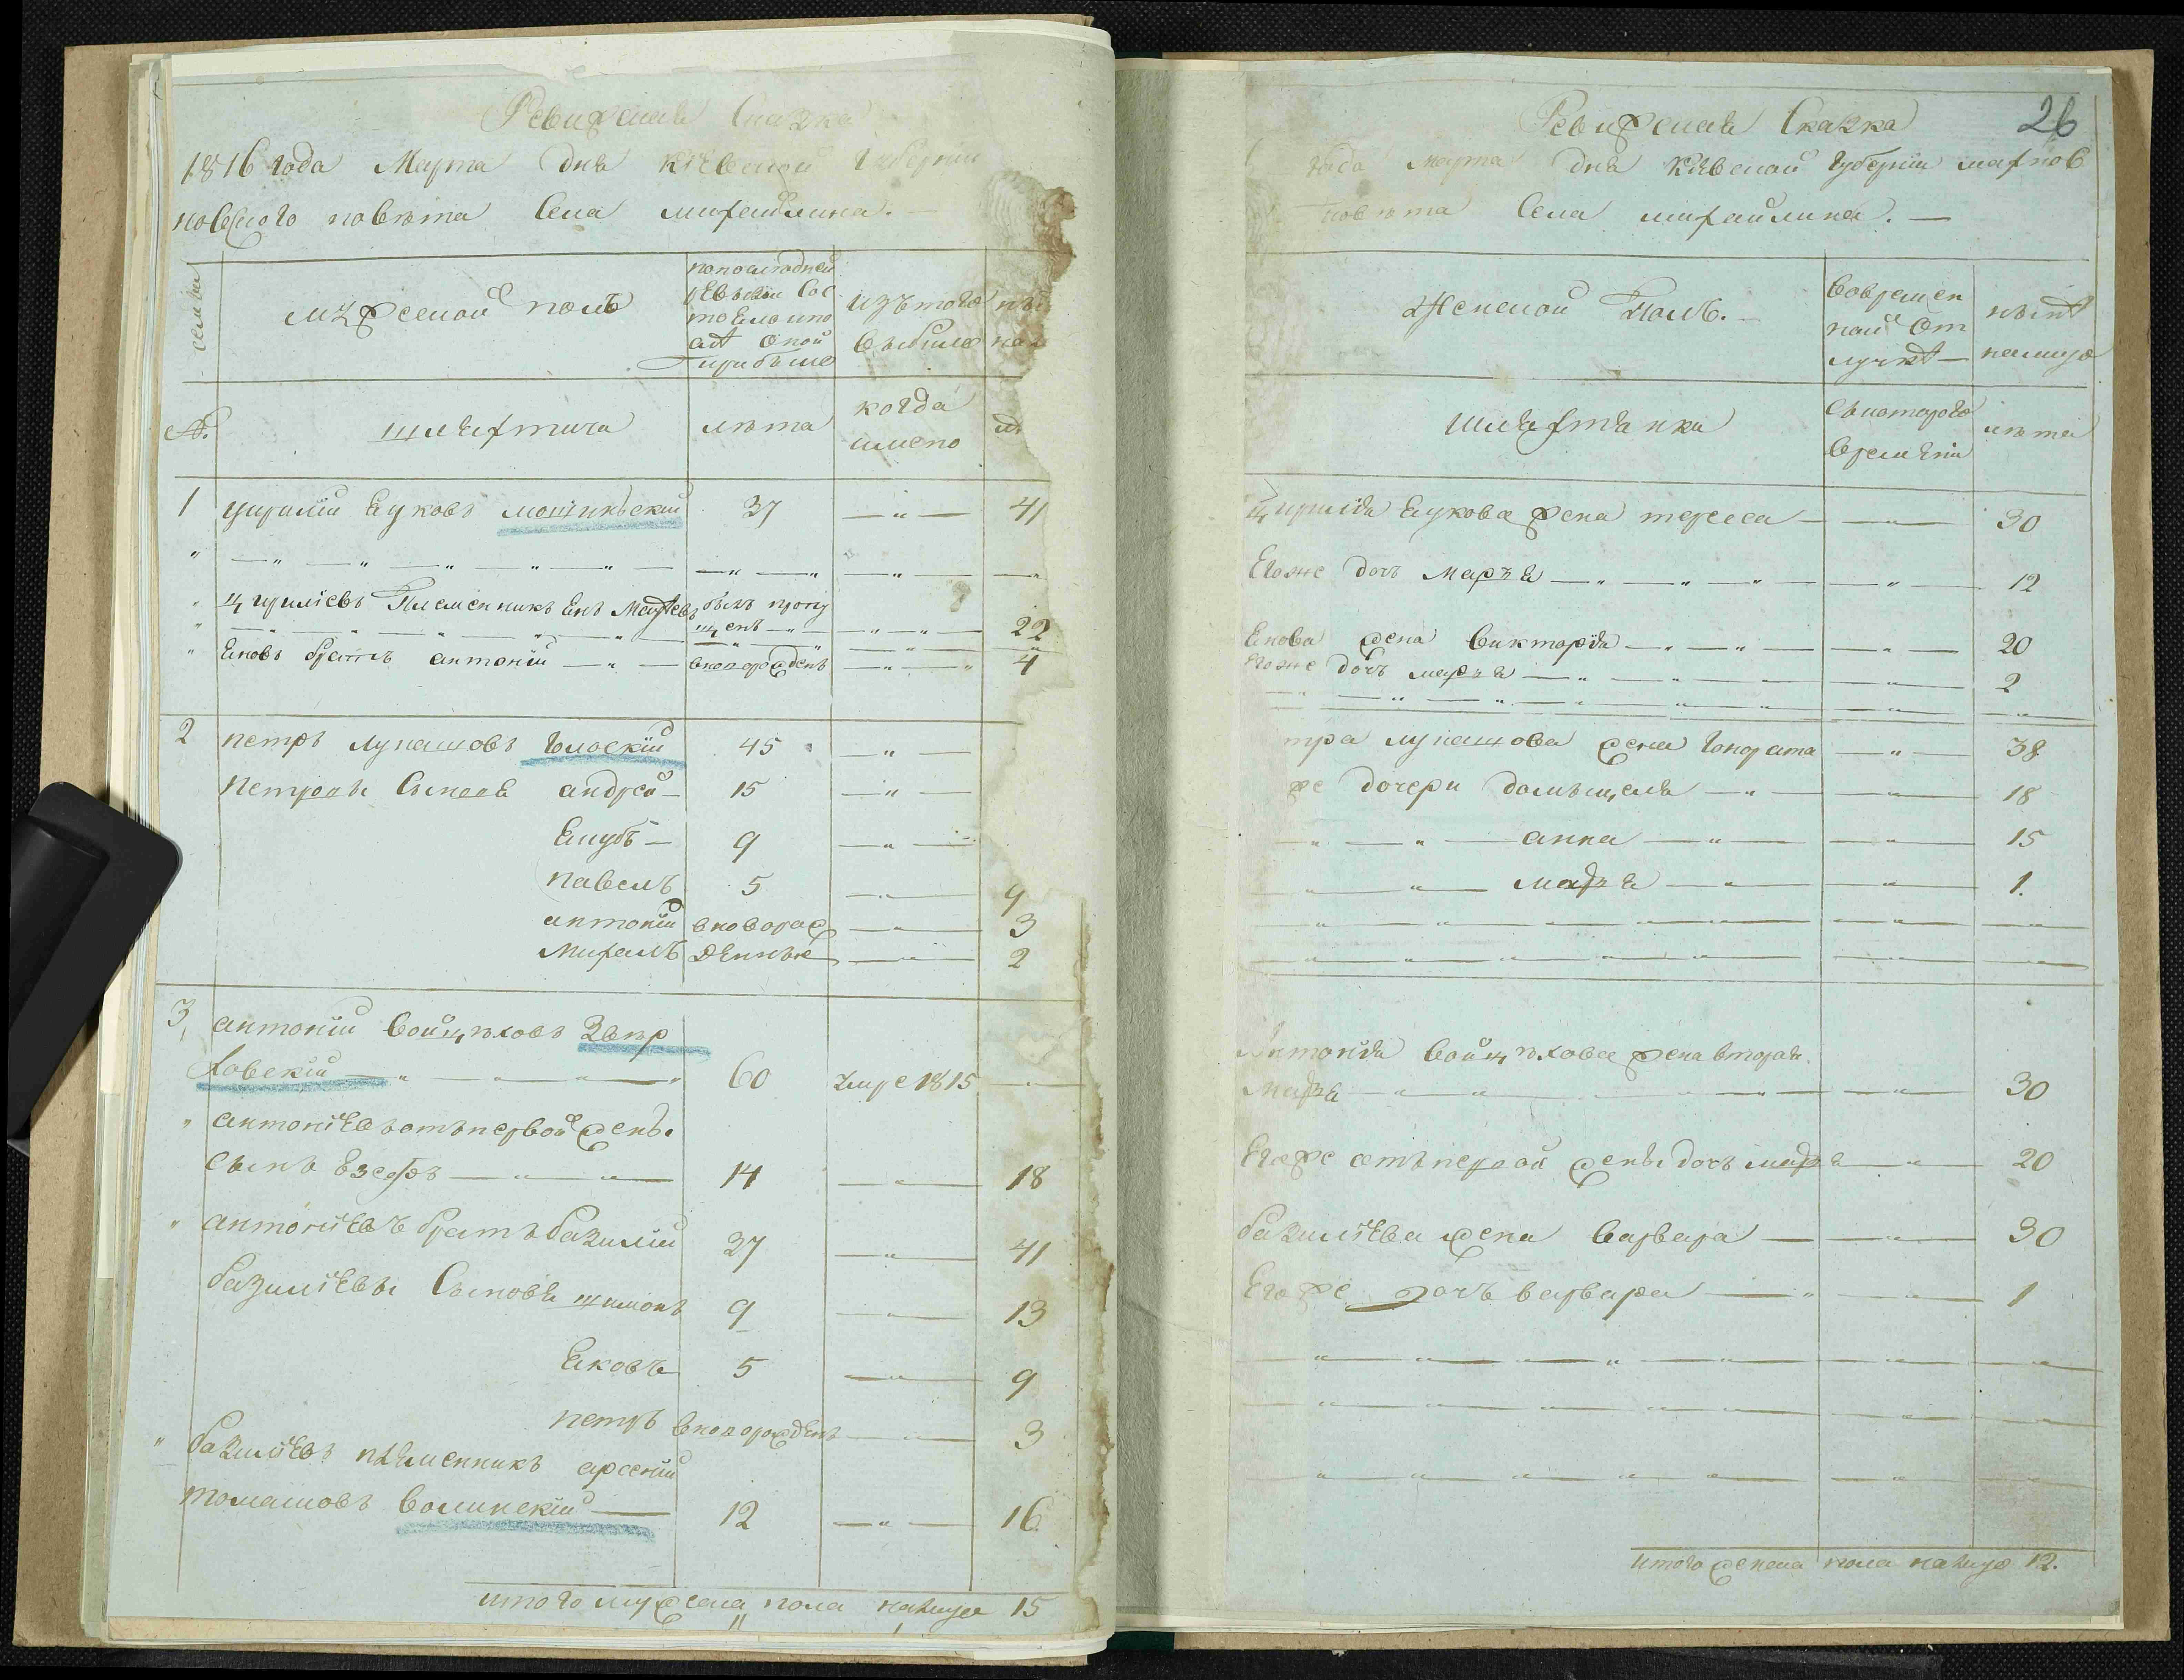 Ревизская Сказка
1816 года Марта дня Киевской Губернии
новского повета Села михайлина.
семьи
мужеской полъ
попоследней
ревизии Сос
тояло ипо
слѣ оной
прибыло
изъ того
выбыло
№.
шляхтичи
лѣта
когда
имено
1 Цирилій Яуковъ 37 — " — 41
Цириліевъ Племенникъ Янъ былъ пропу
щенъ — 22
Яновъ братъ антоній — " — вноворожденъ — 4
2 петръ лукашовъ 45 — " —
Петровы Сыновя андрей — 15 — " —
Якубъ — 9 — " —
павелъ 5 — 9
антоній вноворож — 3
Михалъ денные — 2
3, антоній Войцѣховъ Звѣр
ховскій — " — 60 умре 1815
" антоніевъ отъ первой жены
Сынъ Езефъ — 14 — 18
" антоніевъ братъ базилій 37 — 41
базиліевы Сыновя шимонъ 9 — 13
Яковъ 5 — 9
петръ вноворожденъ — 3
" базиліевъ племенникъ арсеній
томашовъ Волинскій — 12 — " — 16
итого мужеска пола налицо 15
26
Ревизская Сказка
года марта дня Киевской Губернии махнов
повета Села михайлина. —
Женской Полъ. —
Вовремен
ной От
лучкѣ —
нынѣ
налицо
шляхтянки
Скоторого
времяни
лѣта
Цирилія Яукова жена тереса — " — 30
Егоже дочъ Маръя — " — 12
Янова жена Викторія — " — 20
Егоже дочъ маръя — " — 2
тра лукашова жена Гонората — " — 38
же дочери домъцеля — " — 18
— " — анна — " — 15
— " — Маръя — " — 1.
Антонія Войцѣхова жена вторая
Маръя — " — 30
Егоже отъ первой жены дочъ маръя — " — 20
базиліева жена варвара — 30
Егоже дочъ варвара — " — 1
итого женска пола налицо 12.